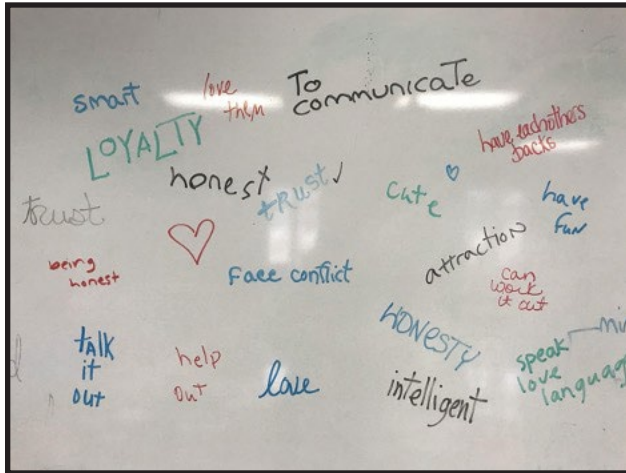 smart
love
them
To
communicate
LOYALTY
have eachothers
backs
honest
trust
cute
have
fun
trust
being
honest
face conflict
attraction
can
work
it out
HONESTY
talk
it
out
help
out
love
intelligent
speak
love
language